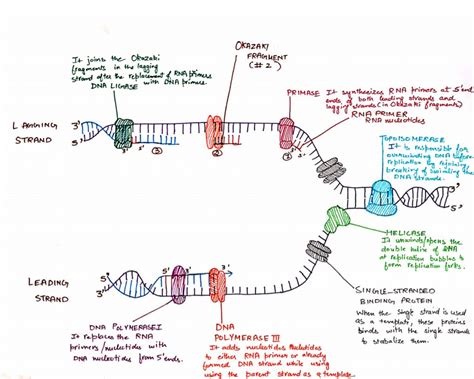 It joins the Okazaki
fragments in the lagging
strand after the replacement of RNA primers
with DNA primers.
DNA LIGASE
OKAZAKI
FRAGMENT
(#2)
PRIMASE
It synthesizes RNA primers at 5' end
ends of both leading strands and
lagging strands (in Okazaki fragments)
RNA PRIMER
RNA nucleotides
LAGGING
STRAND
3'
5'
3'
5'
3'
3'
③
②
①
TOPOISOMERASE
It is responsible for
overwinding DNA before
replication by rejoining
breaking of swivelling the
DNA strands.
3'
5'
HELICASE
It unwinds/opens the
double helix of DNA
at replication bubbles to
form replication forks.
LEADING
STRAND
5'
3'
5'
3'
SINGLE-STRANDED
BINDING PROTEIN
When the single strand is used
as a template, these proteins
binds with the single strands
to stabalize them.
DNA POLYMERASE I
It replaces the RNA
primers/nucleotides with
DNA nucleotides from 5' ends.
DNA
POLYMERASE III
It adds nucleotides
to either RNA primer or already
formed DNA strand while using
using the parent strand as a template